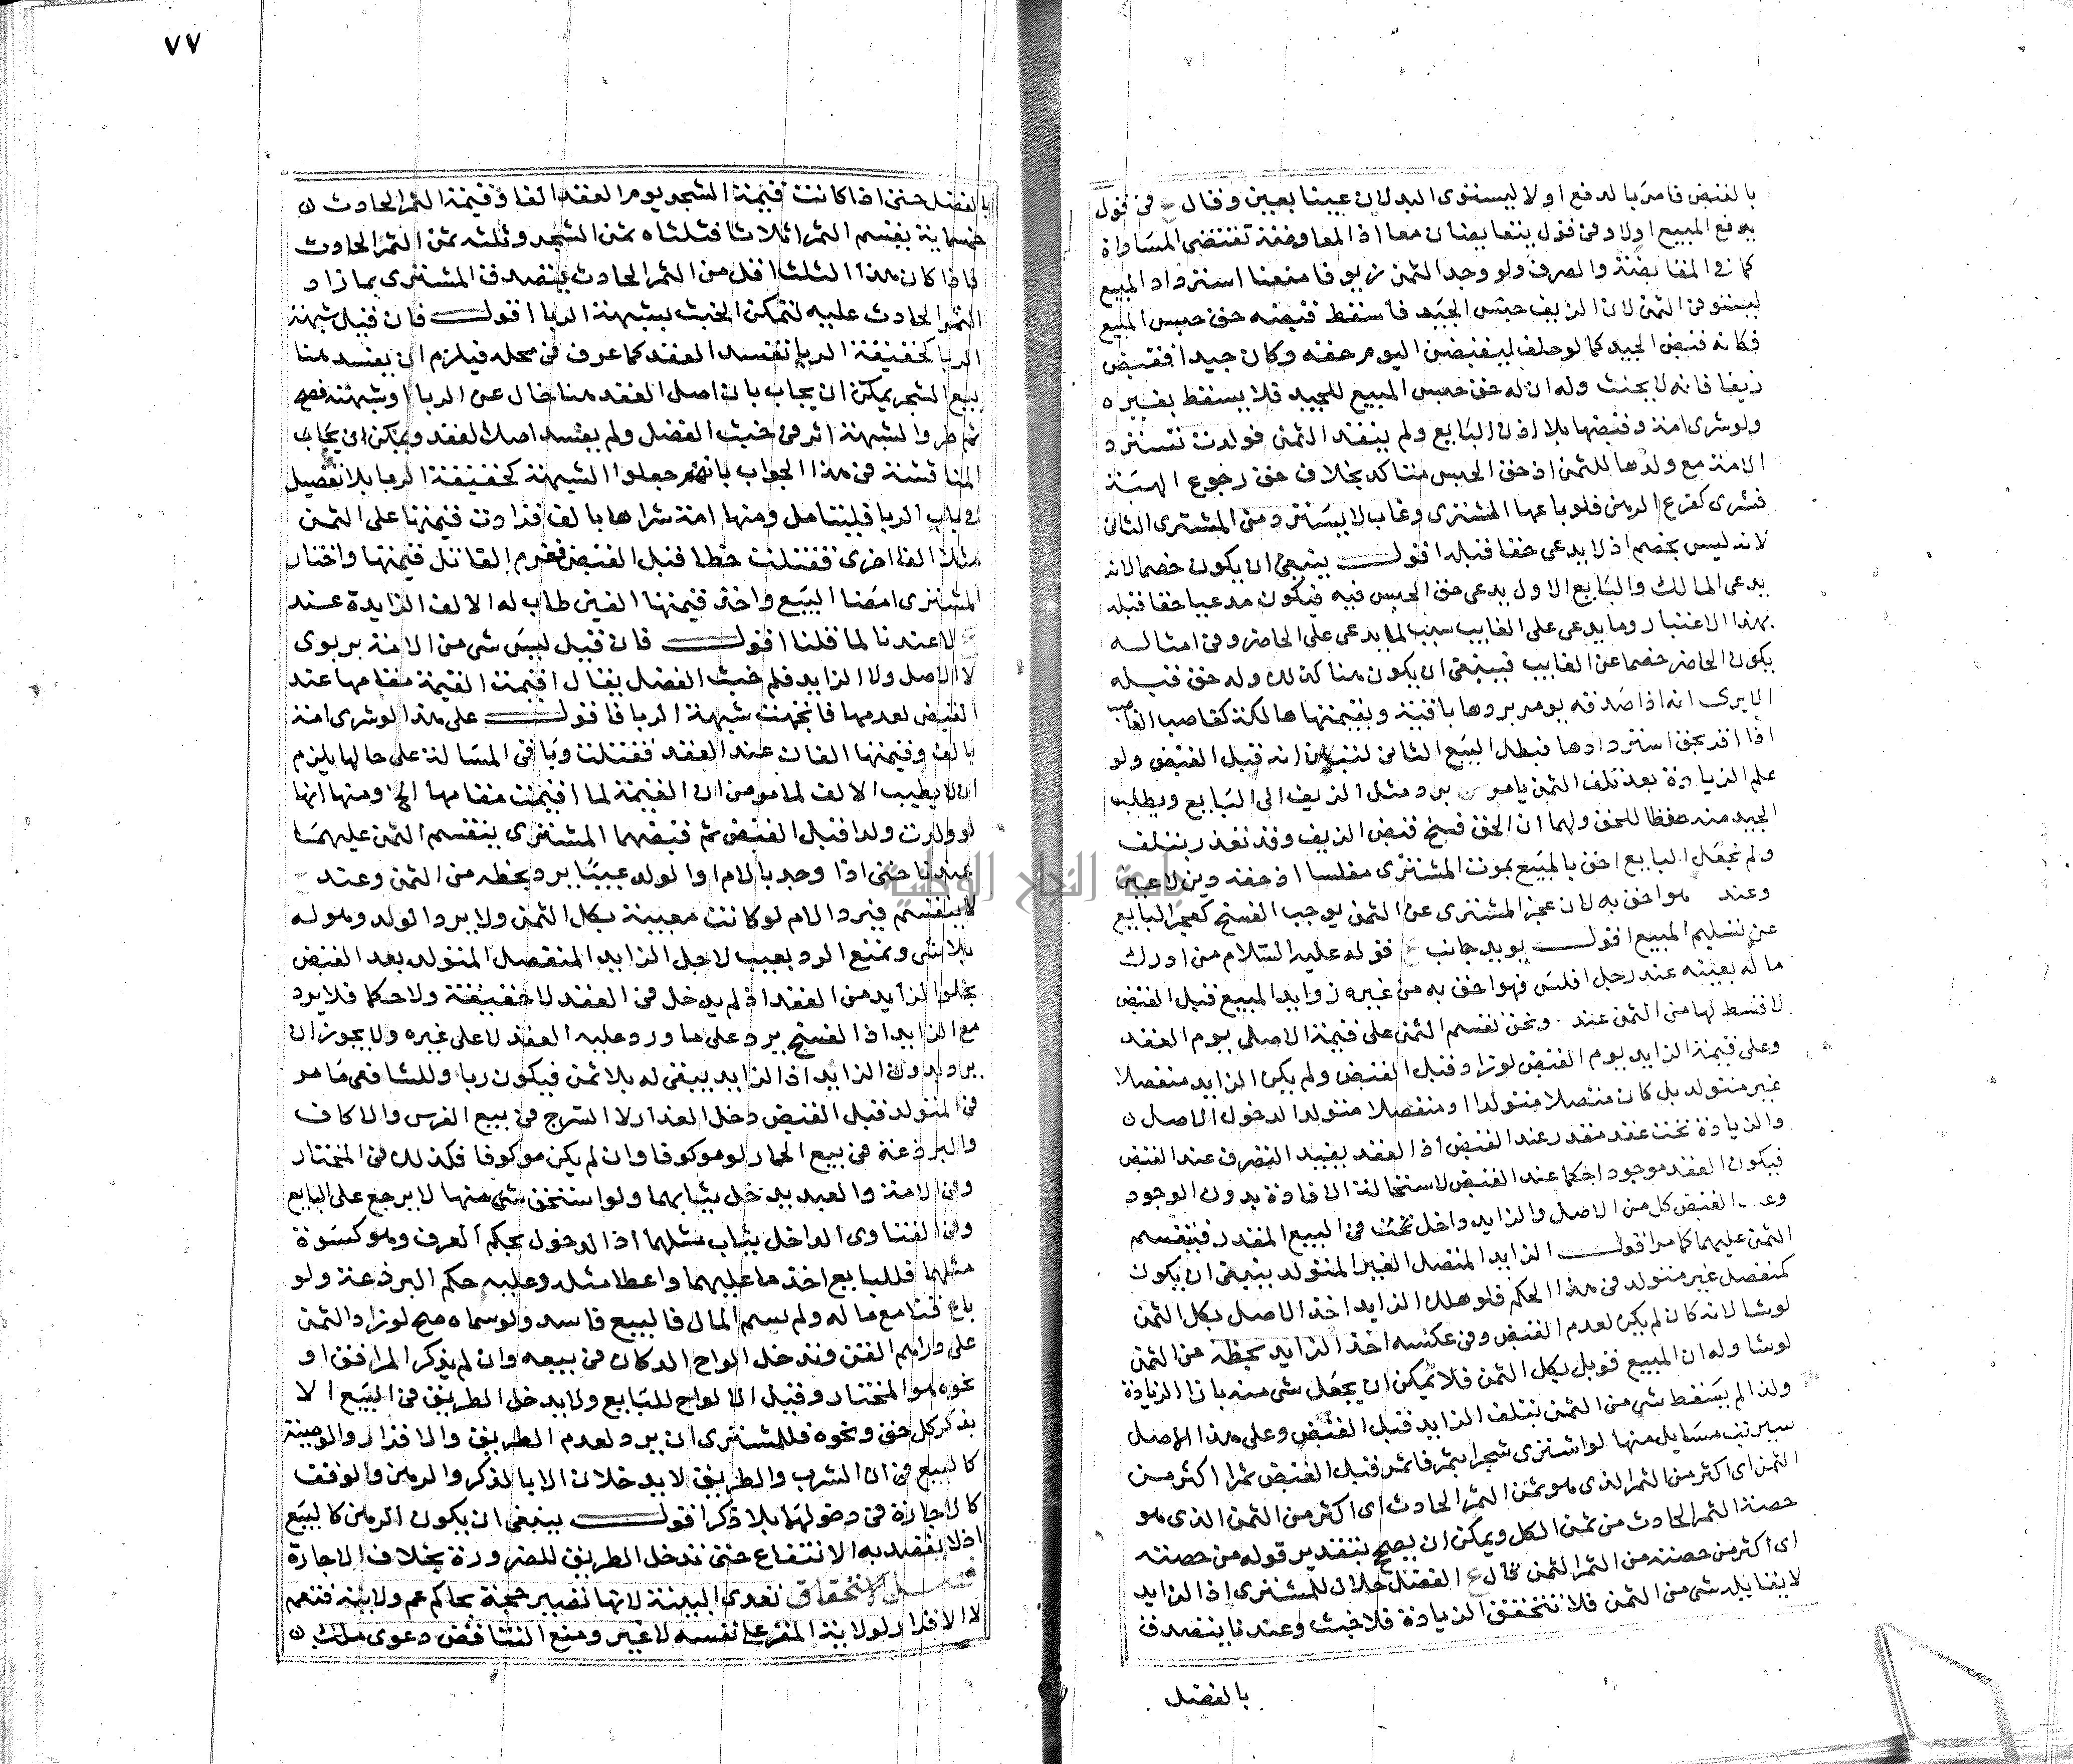 بالقبض فامر بالدفع اولا ليستوى البدلان عينا بعين وقال ع فى قول
يدفع المبيع اولا وفى قول يتقابضان معا اذ المعاوضة تقتضى المساواة
كما فى المقايضة والصرف ولو وجد الثمن زيوفا منعنا استرداد المبيع
ليستوفى الثمن لان الزيف جنس الجيد فاسقط قبضه حق حبس المبيع
فكانه قبض الجيد كما لو حلف ليقبضن اليوم حقه وكان جيدا فقبض
زيفا فانه لا يحنث وله ان له حق حبس المبيع للجيد فلا يسقط بغيره
ولو شرى امة وقبضها بلا اذن البايع ولم ينقد الثمن فولدت تسترد
الامة مع ولدها للثمن اذ حق الحبس متاكد بخلاف حق رجوع الهبة
فسرى كفرع الرهن فلو باعها المشترى وغاب لا يسترد من المشترى الثانى
لانه ليس بخصم اذ لا يدعى حقا قبله اقول ينبغى ان يكون خصما لانه
يدعى المالك والبايع الاول يدعى حق الحبس فيه فيكون مدعيا حقا قبله
بهذا الاعتبار وما يدعى على الغايب سبب لما يدعى على الحاضر وفى امثاله
يكون الحاضر خصما عن الغايب فينبغى ان يكون هنا كذلك وله حق قبله
الا يرى انه اذا صدقه يومر بردها باقية وبقيمتها هالكة كغاصب الغاصب
اذا اقر بحق استردادها فبطل البيع الثانى لتبين انه قبل القبض ولو
علم الزيافة بعد تلف الثمن يامر س برد مثل الزيف الى البايع ويطلب
الجيد منه حفظا للحق ولهما ان الحق فسخ قبض الزيف وقد تعذر بتلف
ولم نجعل البايع احق بالمبيع بموت المشترى مفلسا اذ حقه دين لا عين
وعند هو احق به لان عجز المشترى عن الثمن يوجب الفسخ كعجز البايع
عن تسليم المبيع اقول يويد جانب ع قوله عليه السلام من ادرك
ماله بعينه عند رجل افلس فهو احق به من غيره زوايد المبيع قبل القبض
لا قسط لها من الثمن عند ونحن نقسم الثمن على قيمة الاصلى يوم العقد
وعلى قيمة الزايد يوم القبض لو زاد قبل القبض ولم يكن الزايد منفصلا
غير متولد بل كان متصلا متولدا او منفصلا متولدا لدخول الاصل
والزيادة تحت عقد مقدر عند القبض اذ العقد يفيد التصرف عند القبض
فيكون العقد موجودا حكما عند القبض لاستحالة الافادة بدون الوجود
وعند القبض كل من الاصل والزايد داخل تحت فى البيع المقدر فيقسم
الثمن عليهما كما مر اقول الزايد المتصل الغير المتولد ينبغى ان يكون
كمنفصل غير متولد فى هذا الحكم فلو هلك الزايد اخذ الاصل بكل الثمن
لو شا لانه كان لم يكن لعدم القبض وفى عكسه اخذ الزايد بحظه من الثمن
لو شا وله ان المبيع قوبل بكل الثمن فلا يمكن ان يجعل شى منه بازا الزيادة
ولذا لم يسقط شى من الثمن بتلف الزايد قبل القبض وعلى هذا الاصل
يترتب مسايل منها لو اشترى شجرا بثمر فاثمر قبل القبض ثمرا اكثر من
الثمن اى اكثر من الثمر الذى هو ثمن الثمر الحادث اى اكثر من الثمن الذى هو
حصة الثمر الحادث من ثمن الكل ويمكن ان يصح بتقدير قوله من حصته
اى اكثر من حصته من الثمر الثمن قال ع الفضل حلال للمشترى اذ الزايد
لا يقابله شى من الثمن فلا تتحقق الزيادة فلا خبث وعندنا يتصدق
بالفضل
٧٧
بالفضل حتى اذا كانت قيمة الشجر يوم العقد الفا وقيمة الثمر الحادث
خمسماية يقسم الثمر اثلاثا فثلثاه ثمن الشجر وثلثه ثمن الثمر الحادث
فاذا كان هذا الثلث اقل من الثمر الحادث يتصدق المشترى بما زاد
الثمر الحادث عليه لتمكن الخبث بشبهة الربا اقول فان قيل شبهة
الربا كحقيقة الربا تفسد العقد كما عرف فى محله فيلزم ان يفسد هنا
بيع الشجر يمكن ان يجاب بان اصل العقد هنا خال عن الربا وشبهته فصح
ثم طرو الشبهة اثر فى خبث الفضل ولم يفسد اصل العقد ويمكن ان يجاب
المناقشة فى هذا الجواب بانهم جعلوا الشبهة كحقيقة الربا بلا تفصيل
فى باب الربا فليتامل ومنها امة شراها بالف فزادت قيمتها على الثمن
مثلا الفا اخرى فقتلت خطا قبل القبض فغرم القاتل قيمتها واختار
المشترى امضا البيع واخذ قيمتها الفين طاب له الالف الزايدة عند
ع لا عندنا لما قلنا اقول فان قيل ليس شى من الامة بربوى
لا الاصل ولا الزايد فلم خبث الفضل يقال اقيمت القيمة مقامها عند
القبض لعدمها فاتجهت شبهة الربا فاقول على هذا لو شرى امة
بالف وقيمتها الفان عند العقد فقتلت وباقى المسالة على حالها يلزم
ان لا يطيب الالف لما مر من ان القيمة لما اقيمت مقامها الخ ومنها انها
لو ولدت ولدا قبل القبض ثم قبضهما المشترى ينقسم الثمن عليهما
عندنا حتى اذا وجد بالام او الولد عيبا يرد بحظه من الثمن وعند
لا ينقسم فيرد الام لو كانت معيبة بكل الثمن ولا يرد الولد وهو له
بلا شى ونمنع الرد بعيب لاجل الزايد المنفصل المتولد بعد القبض
بخلو الزايد من العقد اذ لم يدخل فى العقد لا حقيقة ولا حكما فلا يرد
مع الزايد اذ الفسخ يرد على ما ورد عليه العقد لا على غيره ولا يجوز ان
يرد بدون الزايد اذ الزايد يبقى له بلا ثمن فيكون ربا وللشافعى ما هو
فى المتولد قبل القبض دخل العذار لا السرج فى بيع الفرس والاكاف
والبرذعة فى بيع الحمار لو موكوفا وان لم يكن موكوفا فكذلك فى المختار
وفى الامة والعبد يدخل ثيابهما ولو استحق شى منها لا يرجع على البايع
وفى الفتاوى الداخل ثياب مثلهما اذ الدخول بحكم العرف وهو كسوة
مثلهما فللبايع اخذ ما عليهما واعطا مثله وعليه حكم البرذعة ولو
باع قنا مع ماله ولم يسم المال فالبيع فاسد ولو سماه صح لو زاد الثمن
على دراهم القن وتدخل الواح الدكان فى بيعه وان لم يذكر المرافق او
نحوه هو المختار وقيل الالواح للبايع ولا يدخل الطريق فى البيع الا
بذكر كل حق ونحوه فللمشترى ان يرد لعدم الطريق والاقرار والوصية
كالبيع فى ان الشرب والطريق لا يدخلان الا بالذكر والرهن والوقف
كالاجارة فى دخولهما بلا ذكر اقول ينبغى ان يكون الرهن كالبيع
اذ لا يقصد به الانتفاع حتى تدخل الطريق للضرورة بخلاف الاجارة
فصل الاستحقاق تعدى البينة لانها تصير حجة بحاكم عم ولايته فتعم
لا الاقرار لولاية المقر على نفسه لا غير ومنع التناقض دعوى ملك